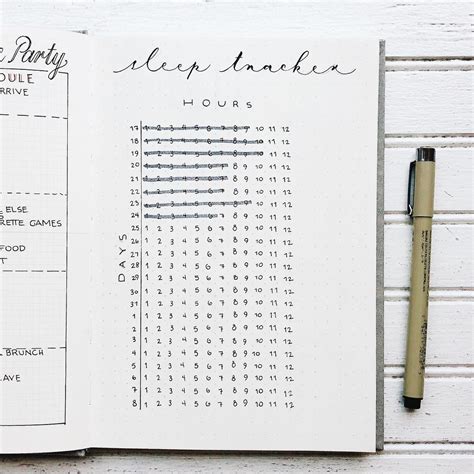 Party
DULE
ARRIVE
ELSE
ETTE GAMES
FOOD
T
L BRUNCH
AVE
sleep tracker
HOURS
DAYS
17 1 2 3 4 5 6 7 8 9 10 11 12
18 1 2 3 4 5 6 7 8 9 10 11 12
19 1 2 3 4 5 6 7 8 9 10 11 12
20 1 2 3 4 5 6 7 8 9 10 11 12
21 1 2 3 4 5 6 7 8 9 10 11 12
22 1 2 3 4 5 6 7 8 9 10 11 12
23 1 2 3 4 5 6 7 8 9 10 11 12
24 1 2 3 4 5 6 7 8 9 10 11 12
25 1 2 3 4 5 6 7 8 9 10 11 12
26 1 2 3 4 5 6 7 8 9 10 11 12
27 1 2 3 4 5 6 7 8 9 10 11 12
28 1 2 3 4 5 6 7 8 9 10 11 12
29 1 2 3 4 5 6 7 8 9 10 11 12
30 1 2 3 4 5 6 7 8 9 10 11 12
31 1 2 3 4 5 6 7 8 9 10 11 12
1 1 2 3 4 5 6 7 8 9 10 11 12
2 1 2 3 4 5 6 7 8 9 10 11 12
3 1 2 3 4 5 6 7 8 9 10 11 12
4 1 2 3 4 5 6 7 8 9 10 11 12
5 1 2 3 4 5 6 7 8 9 10 11 12
6 1 2 3 4 5 6 7 8 9 10 11 12
7 1 2 3 4 5 6 7 8 9 10 11 12
8 1 2 3 4 5 6 7 8 9 10 11 12